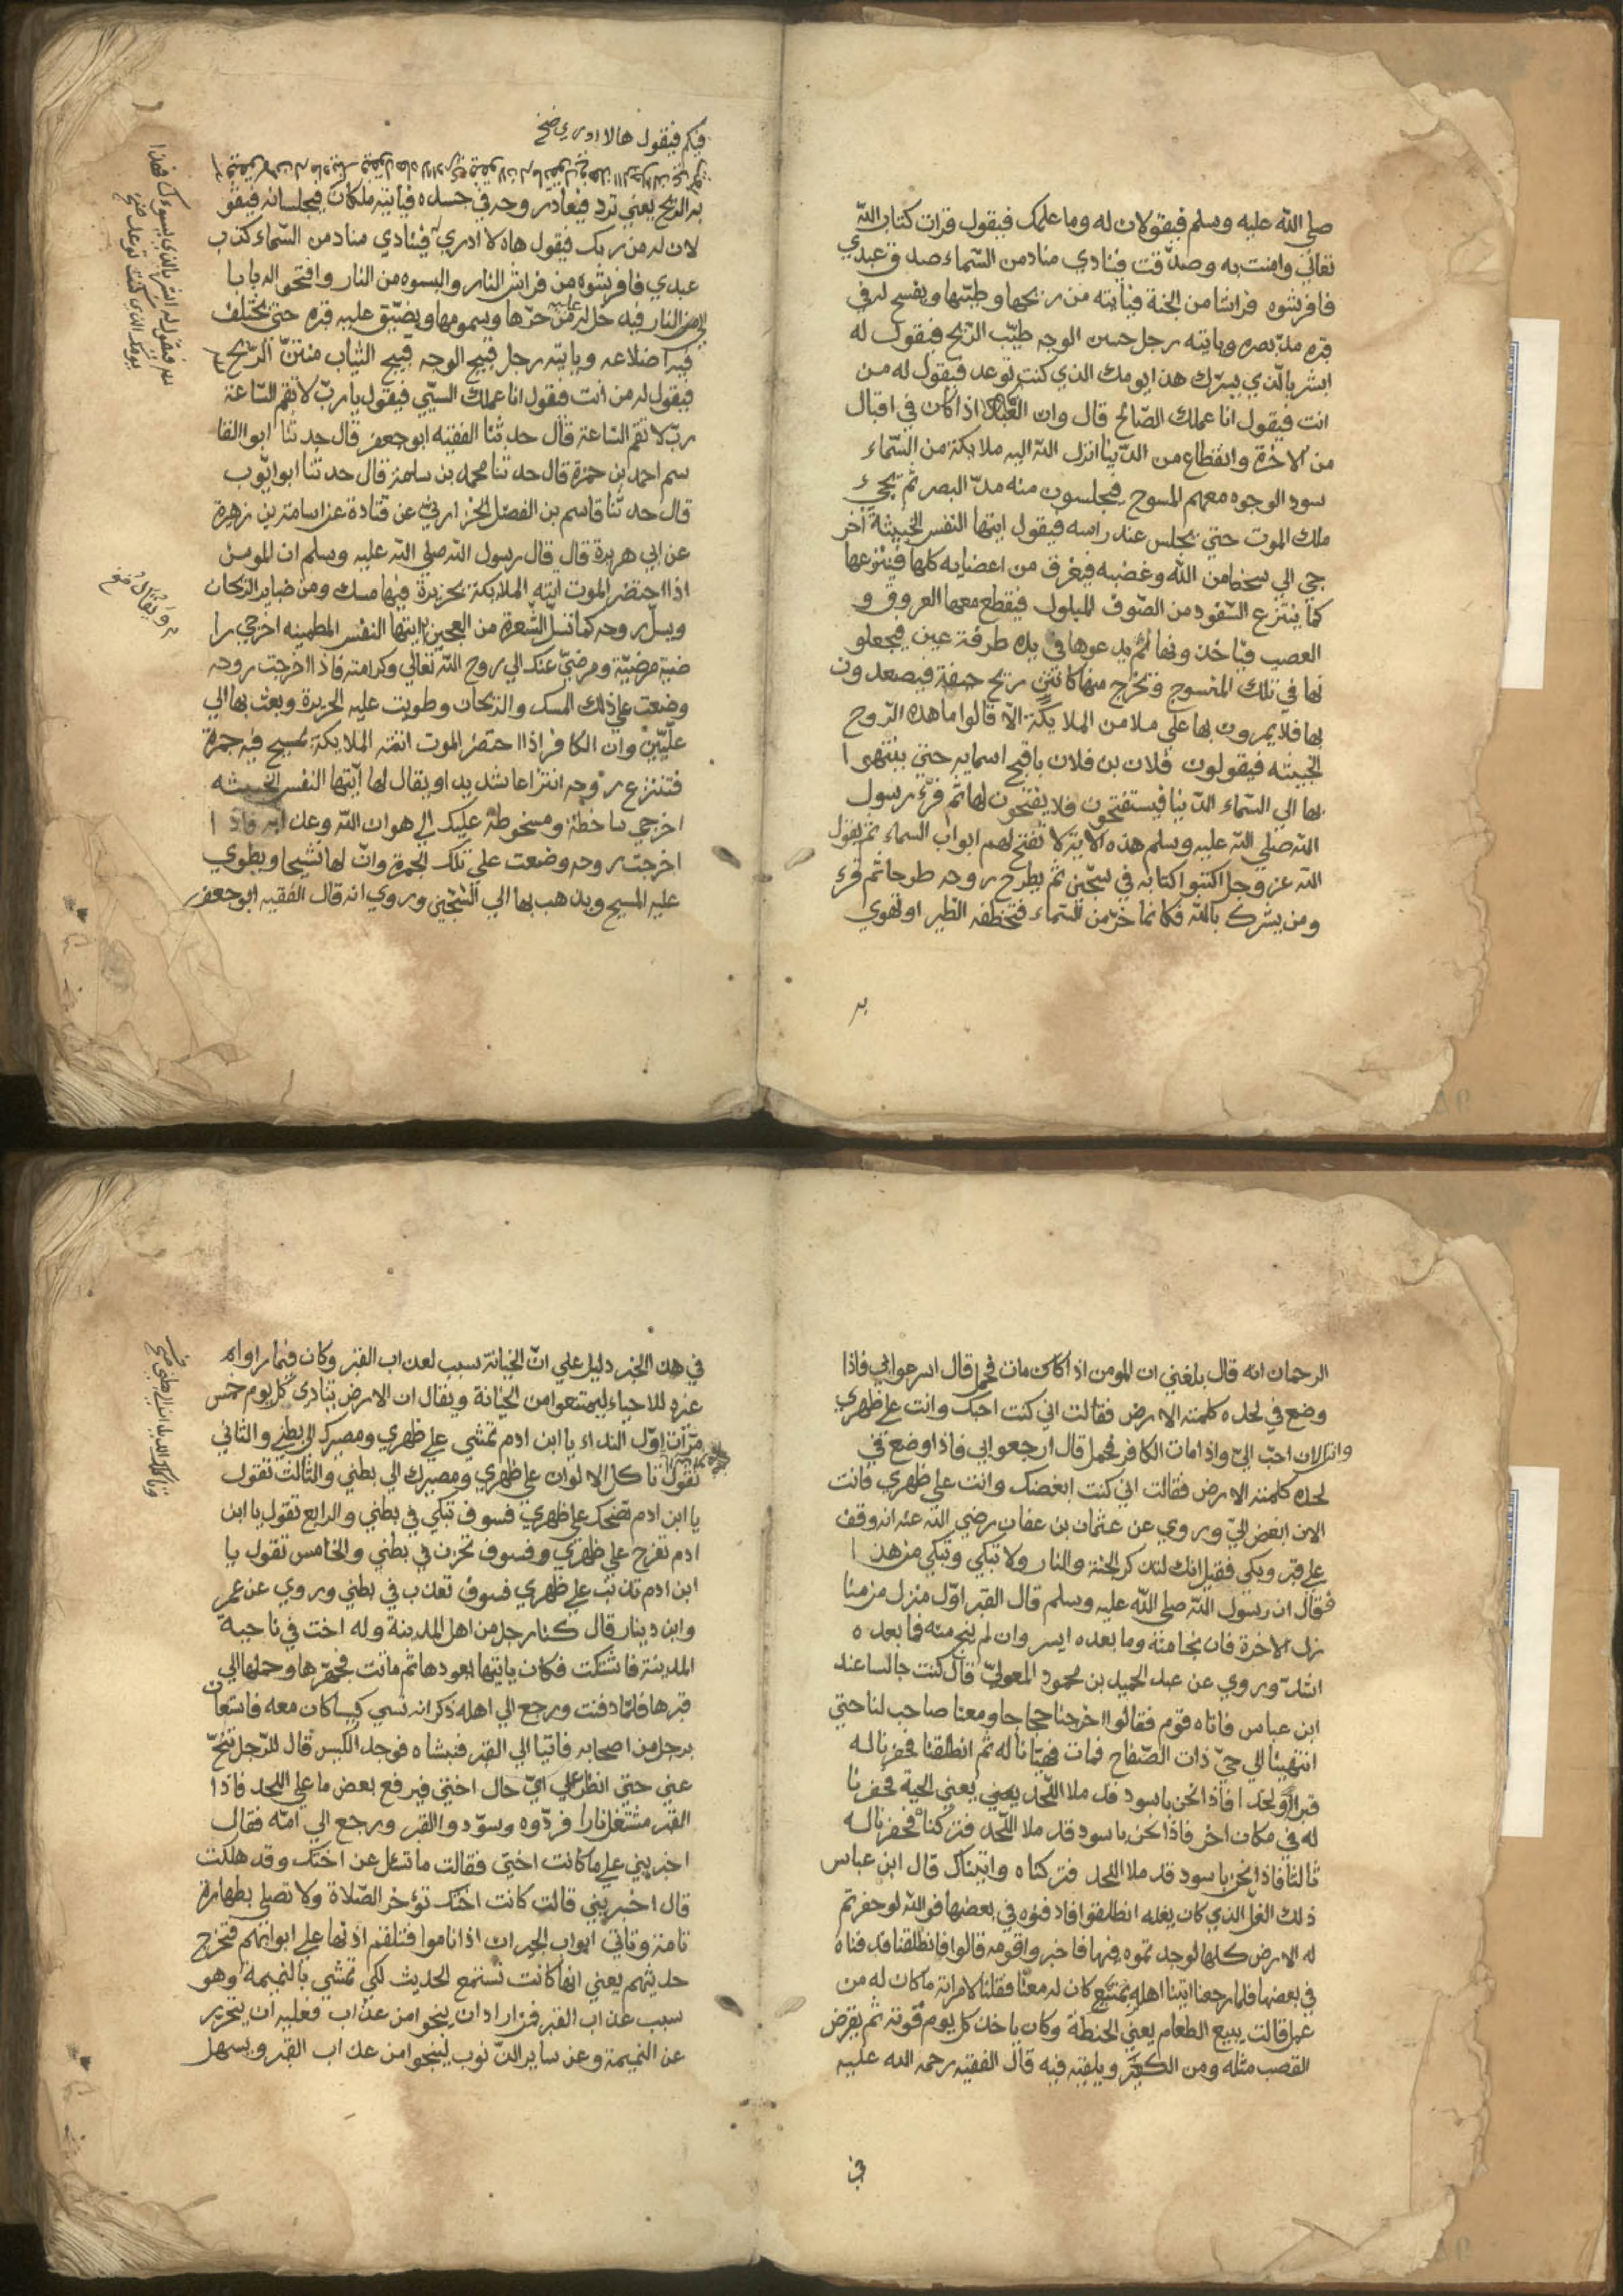 صلي الله عليه وسلم فيقولان له وما علمك فيقول قرات كتاب الله
تعالي وامنت به وصدّقت فينادي مناد من السّماء صدق عبدي
فافرشوه فراشا من الجنة فيأتيه من ريحها وطيّبها ويفسح له في
قبره مدّ بصره وياتيه رجل حسن الوجه طيّب الرّيح فيقول له
ابشر بالّذي يسرّك هذا يومك الذي كنت توعد فيقول له من
انت فيقول انا عملك الصّالح قال وان العبد اذا كان في اقبال
من الاخرة وانقطاع من الدّنيا انزل الله اليه ملايكة من السّماء
سود الوجوه معهم المسوح فيجلسون منه مدّ البصر ثم يجيء
ملك الموت حتي يجلس عند راسه فيقول ايتها النفس الخبيثة اخر
جي الي سخط من الله وغضبه فيغرق من اعضايه كلها فينزعها
كما ينتزع السّفود من الصّوف المبلول فيقطع معها العروق و
العصب فياخذونها لم يدعوها في يده طرفة عين فيجعلو
نها في تلك المسوح وتخرج منها كانتن ريح جيفة فيصعدون
بها فلا يمرون بها علي ملا من الملايكة الّا قالوا ما هذه الرّوح
الخبيثه فيقولون فلان بن فلان باقبح اسمايه حتي ينتهوا
بها الي السّماء الدّنيا فيستفتحون فلا يفتحون لها ثم قرء رسول
الله صلي الله عليه وسلم هذه الاية لا تفتح لهم ابواب السماء ثم يقول
الله عز وجل اكتبوا كتابه في سجّين ثمّ يطرح روحه طرحا ثم قرء
ومن يشرك بالله فكانما خرّ من السّماء فتخطفه الطّير او تهوي
به
فيكم فيقول هالا ادري صح
به الرّيح يعني تردّ فيعاد روحه في جسده فيأتيه ملكان فيجلسانه فيقو
لان له من ربك فيقول هاه لا ادري فينادي مناد من السّماء كذب
عبدي فافرشوه من فراش النّار والبسوه من النار وافتحوا له بابا
من النار فيدخل عليه من حرّها وسمومها ويضيّق عليه قبره حتي تختلف
فيه اضلاعه وياتيه رجل قبيح الوجه قبيح الثياب منتنّ الرّيح
فيقول له من أنت فيقول انا عملك السيّي فيقول يا ربّ لا تقم السّاعة
ربّ لا تقم السّاعة قال حدثنا الفقيه ابو جعفر قال حدثنا ابو القا
سم احمد بن حمزة قال حدثنا محمد بن سلمة قال حدثنا ابو ايّوب
قال حدثنا قاسم بن الفضل الحزارني عن قتادة عن اسامة بن زهرة
عن ابي هريرة قال قال رسول الله صلي الله عليه وسلم ان المومن
اذا احتضر الموت اتته الملايكة بحريرة فيها مسك ومن ضباير الرّيحان
ويسلّ روحه كما تسلّ الشّعرة من العجين ايتها النفس المطمينه اخرجي را
ضية مرضيّة ومرضيّ عنك الي روح الله تعالي وكرامته فاذا اخرجت روحه
وضعت علي ذلك المسك والرّيحان وطويت عليه الحريرة وبعث بها الي
علّيّين وان الكافر اذا احتضر الموت اتته الملايكة بمسح فيه جمرة
فتنتزع روحه انتزاعا شديدا ويقال لها أيّتها النفس الخبيثه
اخرجي ساخطة ومسخوطة عليك الي هوان الله وعذابه فاذا
اخرجت روحه وضعت علي تلك الجمرة وانّ لها نشيجا ويطوي
عليه المسح ويذهب بها الي السّجّين وروي انه قال الفقيه ابو جعفر
ويقال صح
الرحمان انه قال بلغني ان المومن اذا كان مات فحمل قال اسرعوا بي فاذا
وضع في لحده كلمته الارض فقالت اني كنت احبك وانت علي ظهري
وانت الان احبّ اليّ واذا مات الكافر فحمل قال ارجعوا بي فاذا وضع في
لحده كلمته الارض فقالت اني كنت ابغضك وانت علي ظهري فانت
الان ابغض اليّ وروي عن عثمان بن عفان رضي الله عنه انه وقف
علي قبر وبكي فقيل انك لتذكر الجنة والنار ولا تبكي وتبكي من هذا
فقال ان رسول الله صلي الله عليه وسلم قال القبر اوّل منزل من منا
زل الاخرة فان نجا منه وما بعده ايسر وان لم ينج منه فما بعده
اشدّ وروي عن عبد الحميد بن محمود المعوليّ قال كنت جالسا عند
ابن عباس فاتاه قوم فقالوا اخرجنا حجاجا ومعنا صاحب لنا حتي
انتهينا الي حيّ ذات الصّفاح فمات فهيّأنا له ثم انطلقنا فحفرنا له
قبرا ولحدا فاذا نحن باسود قد ملا اللّحد يعني يعني الحية فحفرنا
له في مكان اخر فاذا نحن باسود قد ملا اللّحد فتركناه فحفرنا له
ثالثا فاذا نحن باسود قد ملا اللحد فتركناه واتيناك قال ابن عباس
ذلك الغلّ الذي كان يغله انطلقوا فادفنوه في بعضها فوالله لو حفرتم
له الارض كلها لوجدتموه فيها فاخبروا قومه قالوا فانطلقنا فدفناه
في بعضها فلما رجعنا اتينا اهله بمتاع كان له معنا فقلنا لامراته ما كان له من
عمل قالت يبيع الطعام يعني الحنطة وكان ياخذ كل يوم قوته ثم يقرض
القصب مثله ومن الكعبر ويلقيه فيه قال الفقيه رحمة الله عليه
في
في هذا الخبر دليل علي انّ الخيانة سبب لعذاب القبر وكان فيما راوا له
عبرة للاحياء ليمتنعوا من الخيانة ويقال ان الارض ينادي كل يوم خمس
مرّات اوّل النداء يا ابن ادم تمشي علي ظهري ومصيرك الي بطني والثاني
تقول تأكل الالوان علي ظهري ومصيرك الي بطني والثالث تقول
يا ابن ادم تضحك علي ظهري فسوف تبكي في بطني والرابع تقول يا ابن
ادم تفرح علي ظهري وفسوف تحزن في بطني والخامس تقول يا
ابن ادم تذنب علي ظهري فسوف تعذب في بطني وروي عن عمر
وابن دينار قال كنا رجل من اهل المدينة وله اخت في ناحية
المدينة فاشتكت فكان يأتيها يعودها ثم ماتت فجهّزها وحملها الي
قبرها فلمّا دفنت ورجع الي اهله ذكر انه نسي كيسا كان معه فاستعان
برجل من اصحابه فاتيا الي القبر فنبشاه فوجد الكيس قال للرّجل تنحّ
عني حتي انظر علي ايّ حال اختي فيرفع بعض ما علي اللحد فاذا
القبر مشتغل نارا فردّوه وسوّدوا القبر ورجع الي امّه فقال
اخبريني علي ما كانت اختي فقالت ما تسئل عن اختك وقد هلكت
قال اخبريني قالت كانت اختك تؤخر الصّلاة ولا تصلي بطهارة
تامة وتاتي ابواب الجيران اذا ناموا فتلقم اذنها علي ابوابهم فتخرج
حديثهم يعني انها كانت تستمع الحديث لكي تمشي بالنميمة وهو
سبب عذاب القبر فمن اراد ان ينجوا من عذاب فعليه ان يتحرّر
عن النميمة وعن ساير الذّنوب لينجوا من عذاب القبر ويسهل